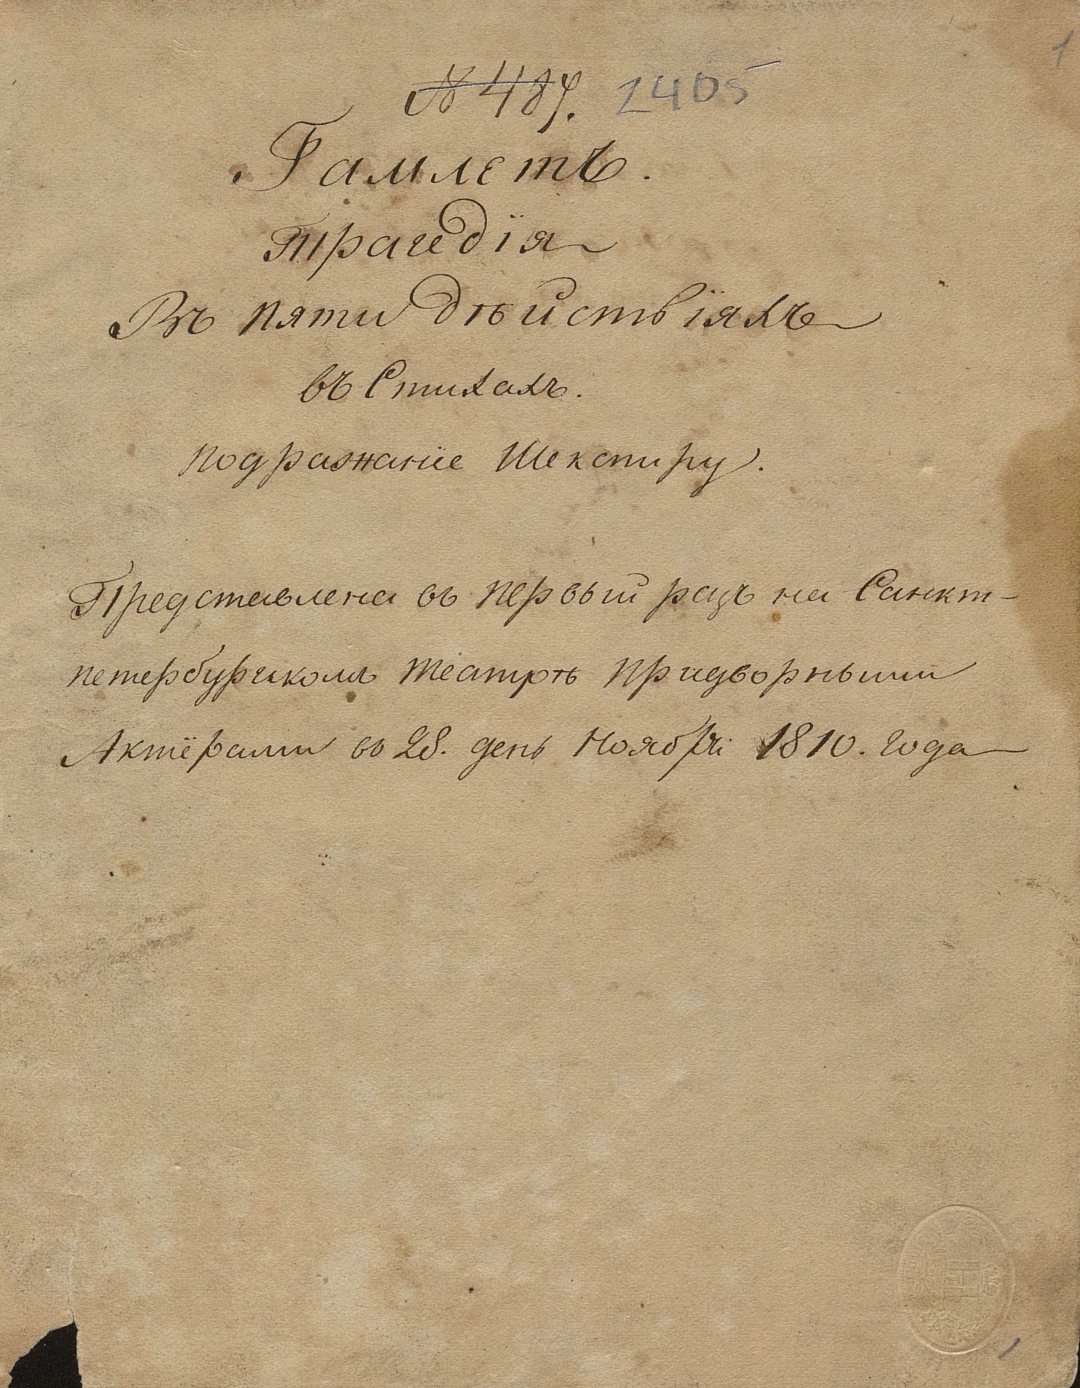 1
№ 489. 2405
Гамлетъ.
Трагедія
Въ пяти дѣйствіяхъ
въ Стихахъ.
подражаніе Шекспиру.
Представлена въ первый разъ на Санкт-
петербургскомъ театрѣ придворными
Актёрами въ 28. день Ноября 1810. года